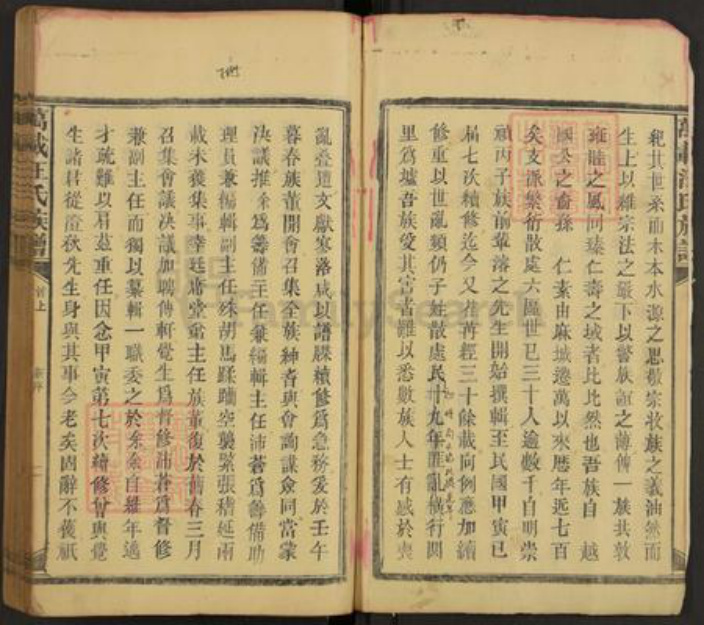 紀其世系而木本水源之思敬宗收族之義油然而
生上以維宗法之嚴下以警族誼之薄傳一族共敦
雍睦之風同臻仁壽之域者比比然也吾族自 越
國公之裔孫 仁素由麻城遷萬以來歷年近七百
矣支派繁衍散處六區世已三十人逾數千自明崇
禎丙子族前輩濬之先生開始撰輯至民國甲寅已
屆七次續修迄今又荏苒經三十餘載向例應加續
修重以世亂頻仍子姓散處民十九年匪亂橫行閭
里為墟吾族受其害者難以悉數族人士有感於喪
亂疊遭文獻寥落咸以譜牒續修為急務爰於壬午
暮春族董開會召集全族紳耆與會詢謀僉同當蒙
決議推余為籌備主任兼編輯主任沛蒼為籌備助
理員兼編輯副主任殊胡馬蹂躪空襲緊張稽延兩
載未獲集事幸廷席堂畬主任族董復於舊春三月
召集會議决議加聘傳軒覺生為督修沛蒼為督修
兼副主任而獨以纂輯一職委之於余余自維年邁
才疏難以肩茲重任因念甲寅第七次續修曾與覺
生諸君從澄秋先生身與其事今老矣固辭不獲祇
萬載汪氏族譜
首上